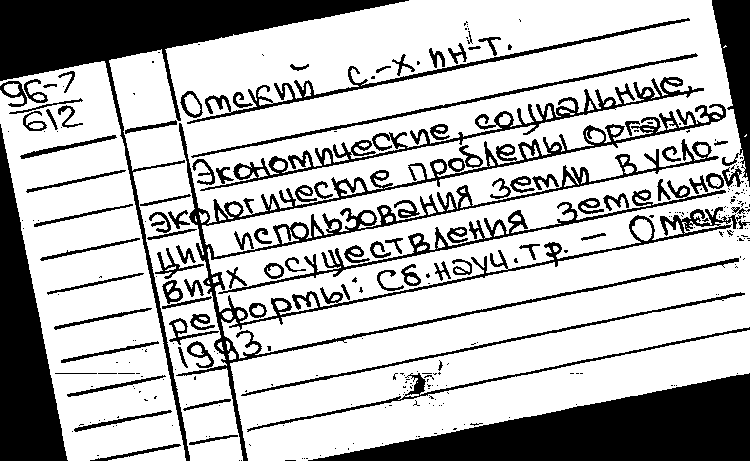 96-7
612
Омский с.-х. ин-т.
Экономические, социальные,
экологические проблемы организа-
ции использования земли в усло-
виях осуществления земельной
реформы: Сб. науч. тр. — Омск,
1993.